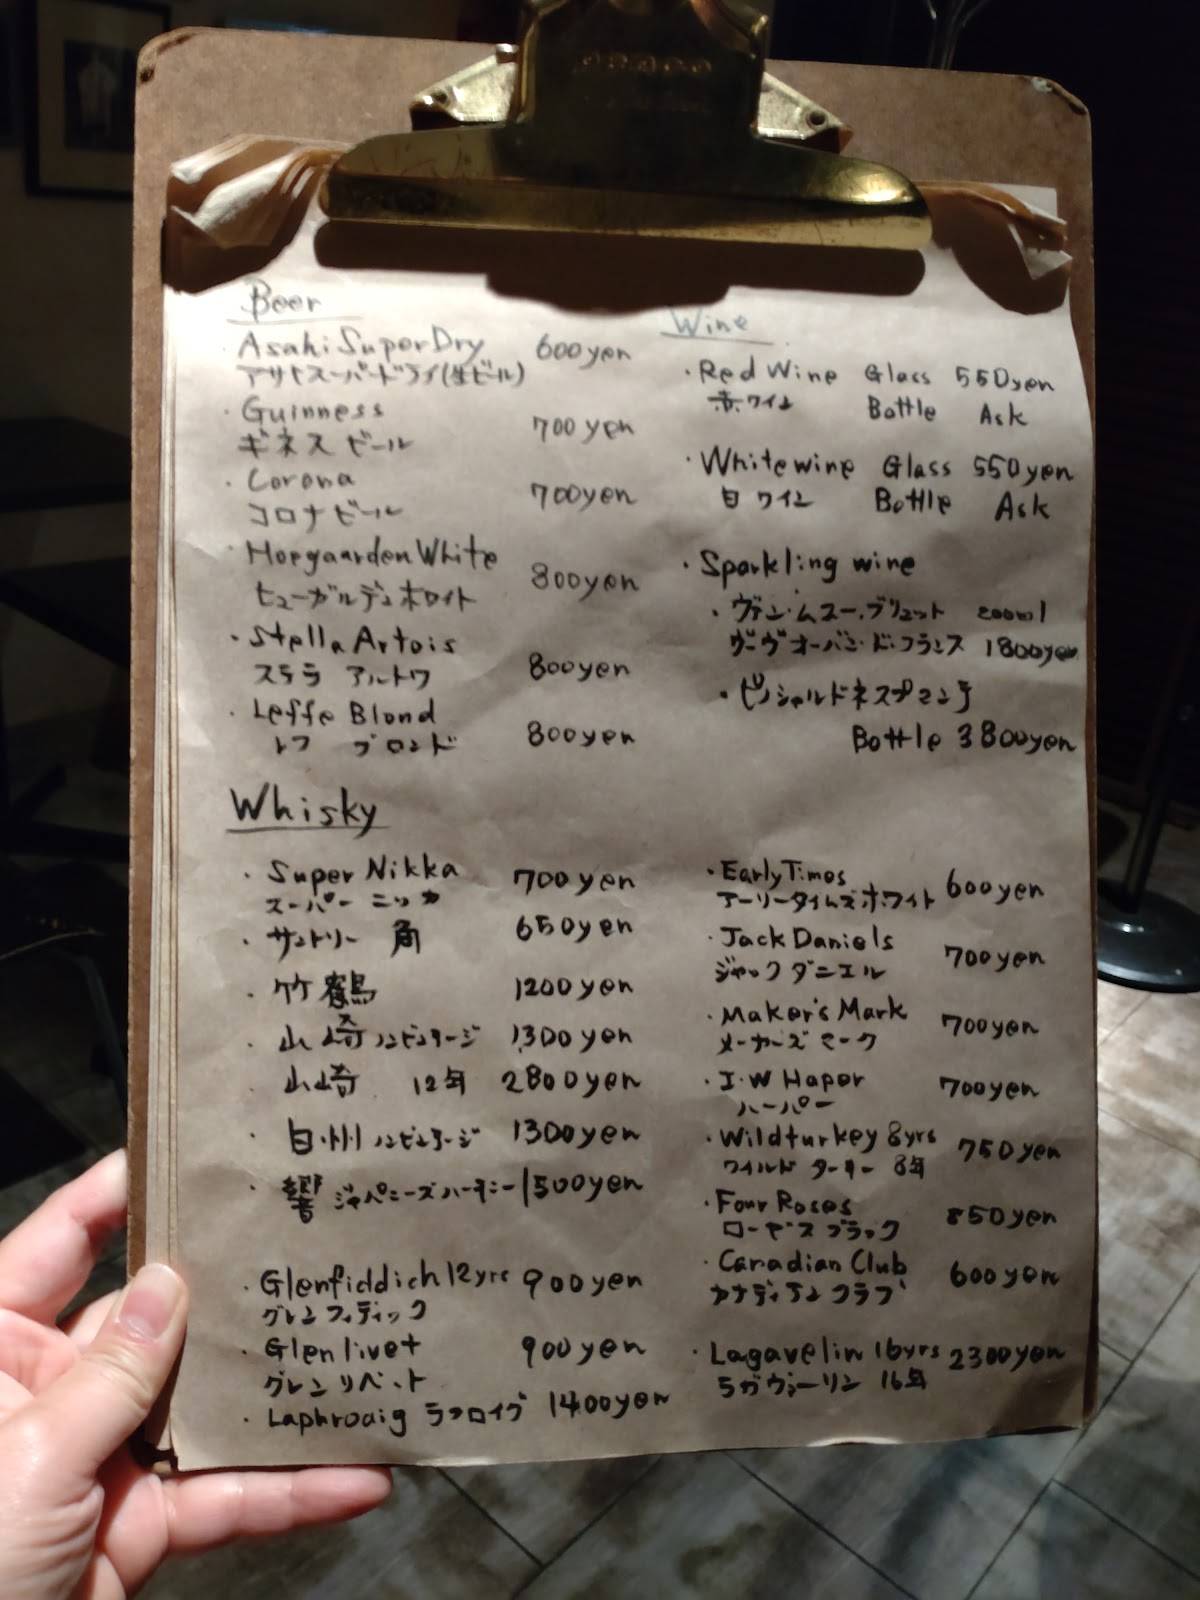 Beer
・Asahi SuperDry 600yen
アサヒスーパードライ(生ビール)
・Guinness
ギネスビール 700yen
・Corona
コロナビール 700yen
・Hoegaarden White
ヒューガルデンホワイト 800yen
・Stella Artois
ステラ アルトワ 800yen
・Leffe Blond
レフ ブロンド 800yen
Wine
・Red Wine Glass 550yen
赤ワイン Bottle Ask
・Whitewine Glass 550yen
白ワイン Bottle Ask
・Sparkling wine
・ヴァン・ムスー・ブリュット 200ml
ヴーヴオーバン・ド・フランス 1800yen
・ピノシャルドネスプマンテ
Bottle 3800yen
Whisky
・Super Nikka 700yen
スーパー ニッカ
・サントリー 角 650yen
・竹鶴 1200yen
・山崎 ノンビンテージ 1300yen
山崎 12年 2800yen
・白州 ノンビンテージ 1300yen
・響 ジャパニーズハーモニー 1500yen
・Glenfiddich 12yrs 900yen
グレンフィディック
・Glenlivet 900yen
グレンリベット
・Laphroaig ラフロイグ 1400yen
・Early Times 600yen
アーリータイムズホワイト
・Jack Daniels
ジャックダニエル 700yen
・Maker's Mark
メーカーズマーク 700yen
・I.W Haper 700yen
ハーパー
・Wildturkey 8yrs 750yen
ワイルド ターキー 8年
・Four Roses 850yen
ローゼス ブラック
・Canadian Club 600yen
カナディアン クラブ
・Lagavelin 16yrs 2300yen
ラガヴーリン 16年